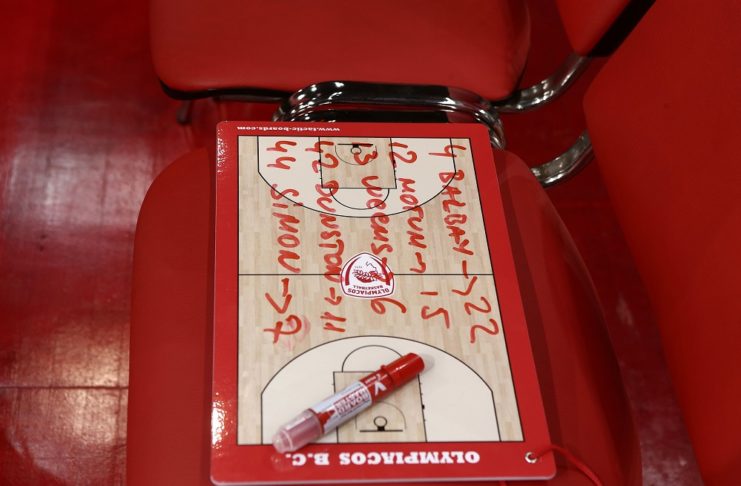 www.tactic-boards.com
4 BALBAY → 22
12 MOTUM → 15
13 WEEMS → 6
42 DUNSTON → 11
44 SIMON → 7
OLYMPIACOS
BASKETBALL
BOARD
MASTER
OLYMPIACOS B.C.